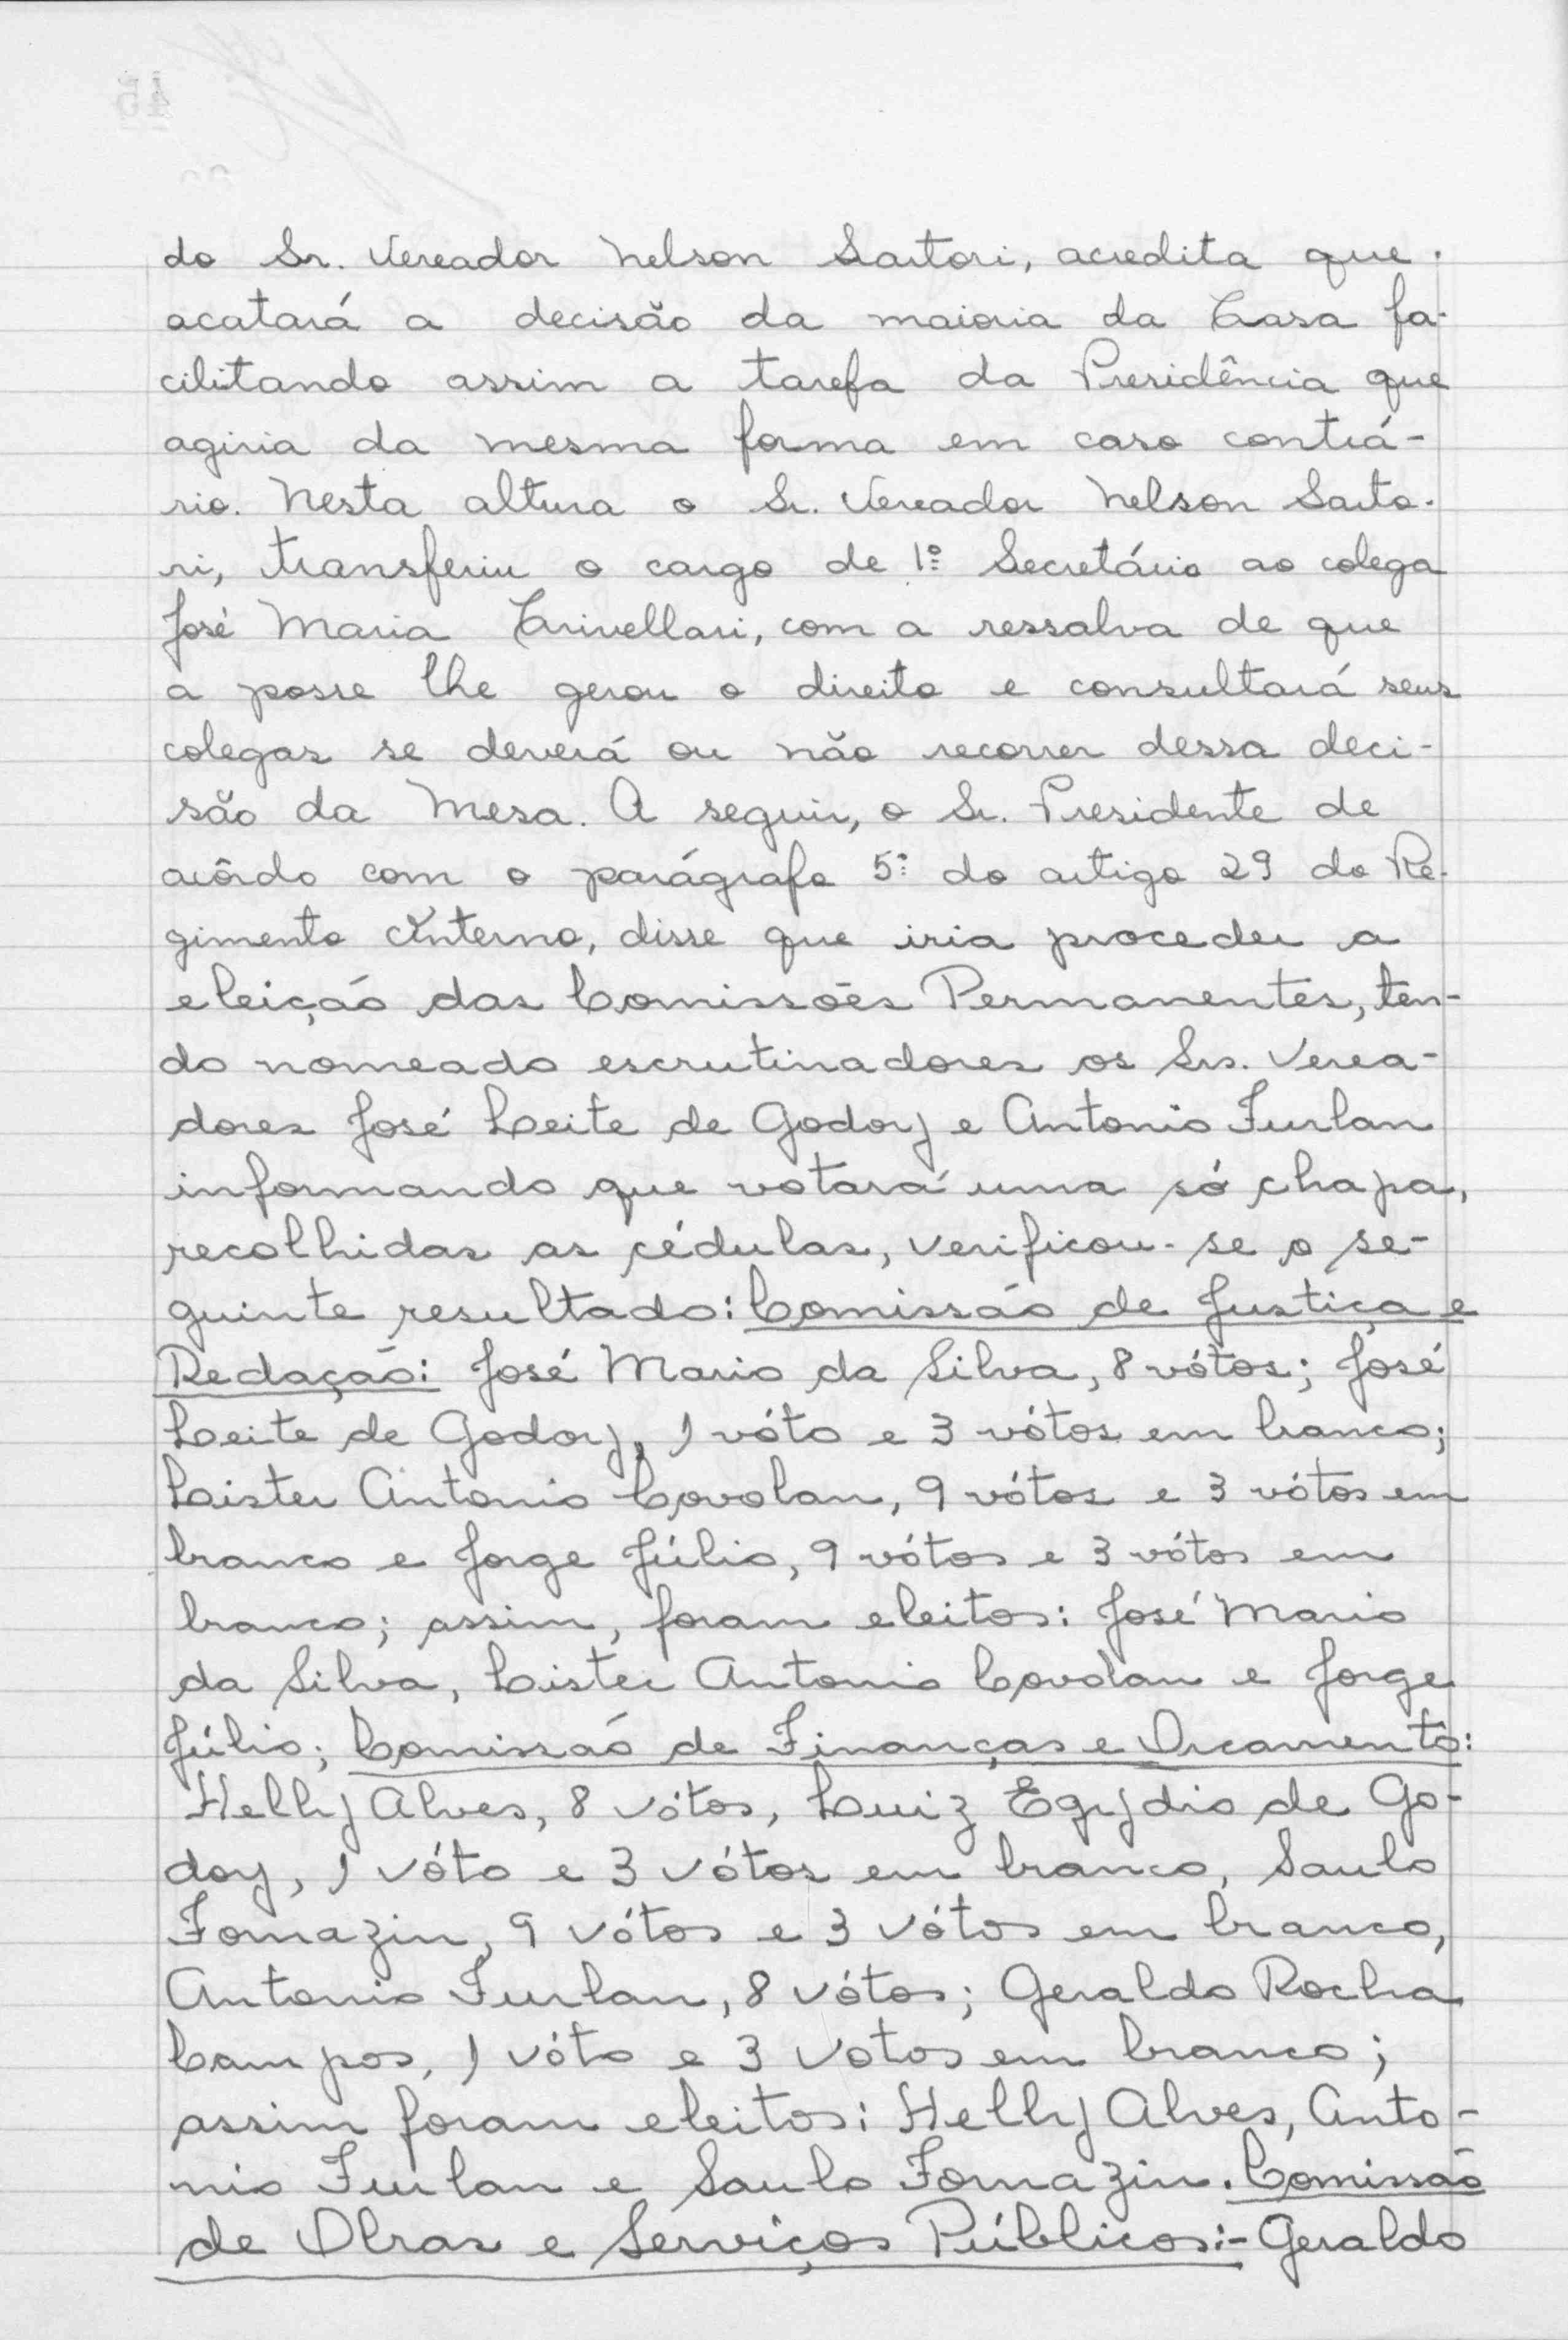 do Sr. Vereador Nelson Sartori, acredita que
acatará a decisão da maioria da Casa fa-
cilitando assim a tarefa da Presidência que
agiria da mesma forma em caso contrá-
rio. Nesta altura o Sr. Vereador Nelson Sarto-
ri, transferiu o cargo de 1º Secretário ao colega
José Maria Crivellari, com a ressalva de que
a posse lhe gerou o direito e consultará seus
colegas se deverá ou não recorrer dessa deci-
são da Mesa. A seguir, o Sr. Presidente de
acôrdo com o parágrafo 5º do artigo 29 do Re-
gimento Interno, disse que iria proceder a
eleição das Comissões Permanentes, ten-
do nomeado escrutinadores os Srs. Verea-
dores José Leite de Godoy e Antonio Furlan
informando que votará uma só chapa,
recolhidas as cédulas, verificou-se o se-
guinte resultado: Comissão de Justiça e
Redação: José Mario da Silva, 8 vótos; José
Leite de Godoy, 1 vóto e 3 vótos em branco;
Lister Antonio Covolan, 9 vótos e 3 vótos em
branco e Jorge Júlio, 9 vótos e 3 vótos em
branco; assim, foram eleitos: José Mario
da Silva, Lister Antonio Covolan e Jorge
Júlio; Comissão de Finanças e Orcamento:
Helly Alves, 8 vótos, Luiz Egydio de Go-
doy, 1 vóto e 3 vótos em branco, Saulo
Fornazin, 9 vótos e 3 vótos em branco,
Antonio Furlan, 8 vótos; Geraldo Rocha
Campos, 1 vóto e 3 votos em branco;
assim foram eleitos: Helly Alves, Anto-
nio Furlan e Saulo Fornazin. Comissão
de Obras e Serviços Públicos:- Geraldo